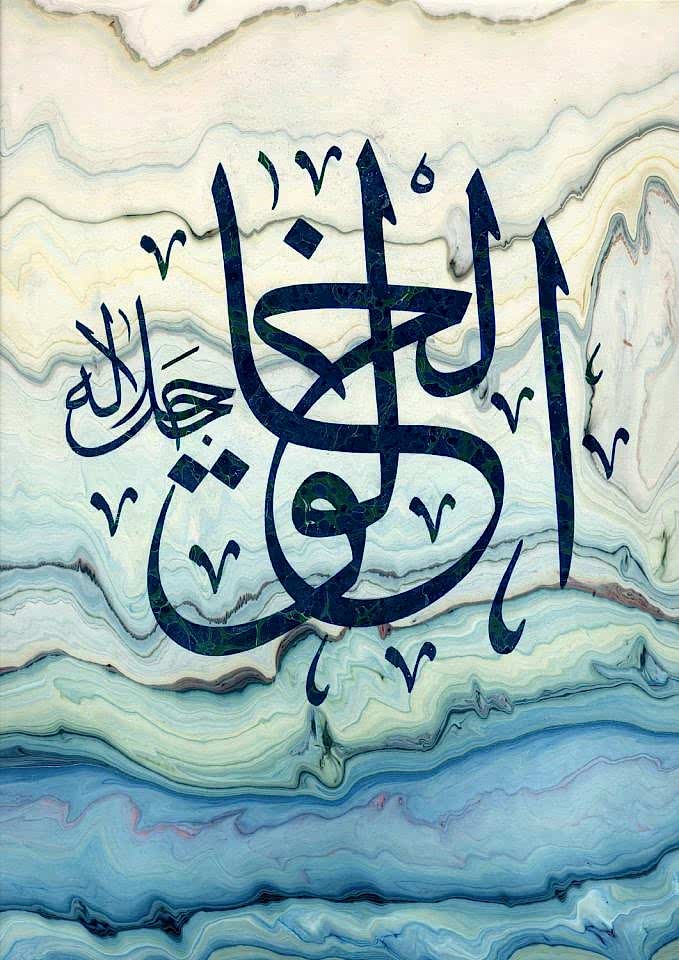 الخالق
جل جلاله